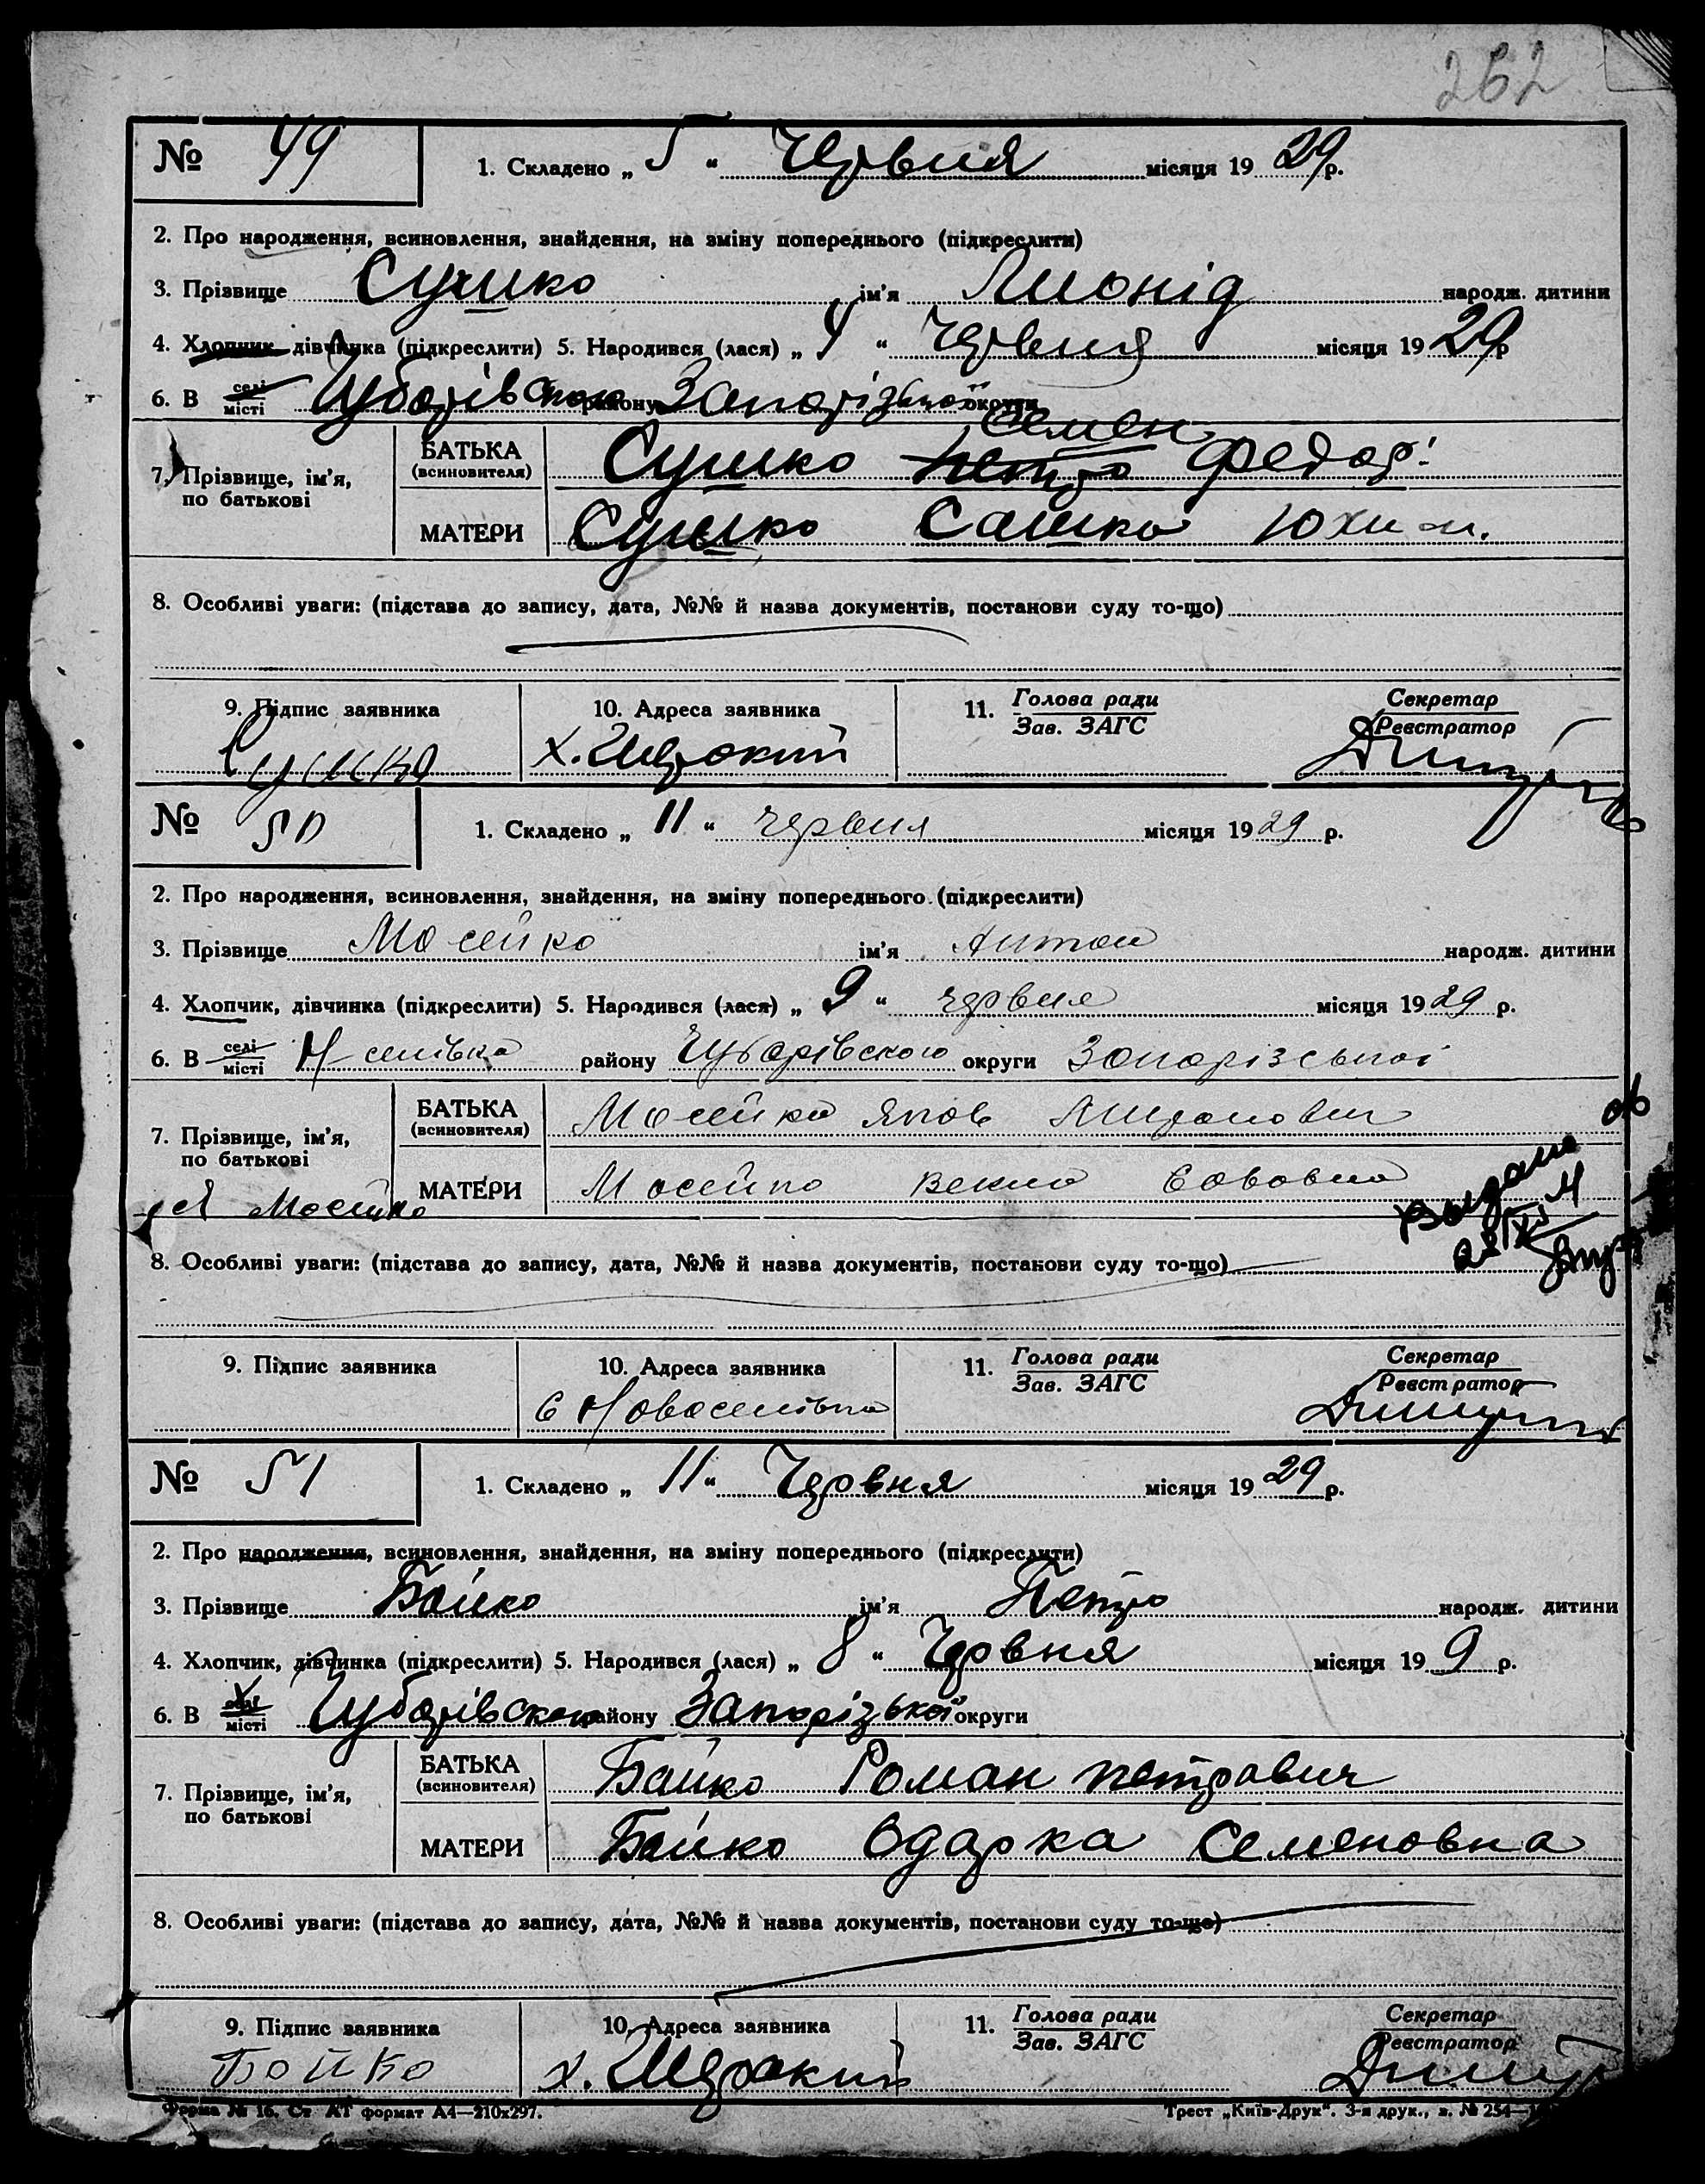 262
№ 49 1. Складено „ 5 “ Червня місяця 1929 р.
2. Про народження, всиновлення, знайдення, на зміну попереднього (підкреслити)
3. Прізвище Сушко ім'я Лионід народж. дитини
4. Хлопчик дівчинка (підкреслити) 5. Народився (лася) „ 4 “ Червня місяця 1929 р
6. В селі місті Цубарівского району Запорізької округи
Семен
7. Прізвище, ім'я, по батькові
БАТЬКА (всиновителя) Сушко Петро Федор.
МАТЕРИ Сушко Сашка Юхим.
8. Особливі уваги: (підстава до запису, дата, №№ й назва документів, постанови суду то-що)
9. Підпис заявника 10. Адреса заявника 11. Голова ради Зав. ЗАГС Секретар Реєстратор
Сушко х. Широкий
№ 50 1. Складено „ 11 “ червня місяця 1929 р.
2. Про народження, всиновлення, знайдення, на зміну попереднього (підкреслити)
3. Прізвище Мосейко ім'я Антон народж. дитини
4. Хлопчик, дівчинка (підкреслити) 5. Народився (лася) „ 9 “ червня місяця 1929 р.
6. В селі місті Н-селівка району Цубарівского округи Запорізської
7. Прізвище, ім'я, по батькові
БАТЬКА (всиновителя) Мосейко Яков
МАТЕРИ Мосейко Векла
Мосейко
Выдано
8. Особливі уваги: (підстава до запису, дата, №№ й назва документів, постанови суду то-що)
9. Підпис заявника 10. Адреса заявника 11. Голова ради Зав. ЗАГС Секретар Реєстратор
с Новоселівка
№ 51 1. Складено „ 11 “ Червня місяця 1929 р.
2. Про народження, всиновлення, знайдення, на зміну попереднього (підкреслити)
3. Прізвище Бойко ім'я Петро народж. дитини
4. Хлопчик, дівчинка (підкреслити) 5. Народився (лася) „ 8 “ Червня місяця 19 9 р.
6. В селі місті Цубарівского району Запорізької округи
7. Прізвище, ім'я, по батькові
БАТЬКА (всиновителя) Бойко Роман Петрович
МАТЕРИ Бойко Одарка Семеновна
8. Особливі уваги: (підстава до запису, дата, №№ й назва документів, постанови суду то-що)
9. Підпис заявника 10. Адреса заявника 11. Голова ради Зав. ЗАГС Секретар Реєстратор
Бойко х. Широкий
Форма № 16. Ст АТ формат А4—210х297. Трест „Київ-Друк“. 3-я друк., з. № 254—